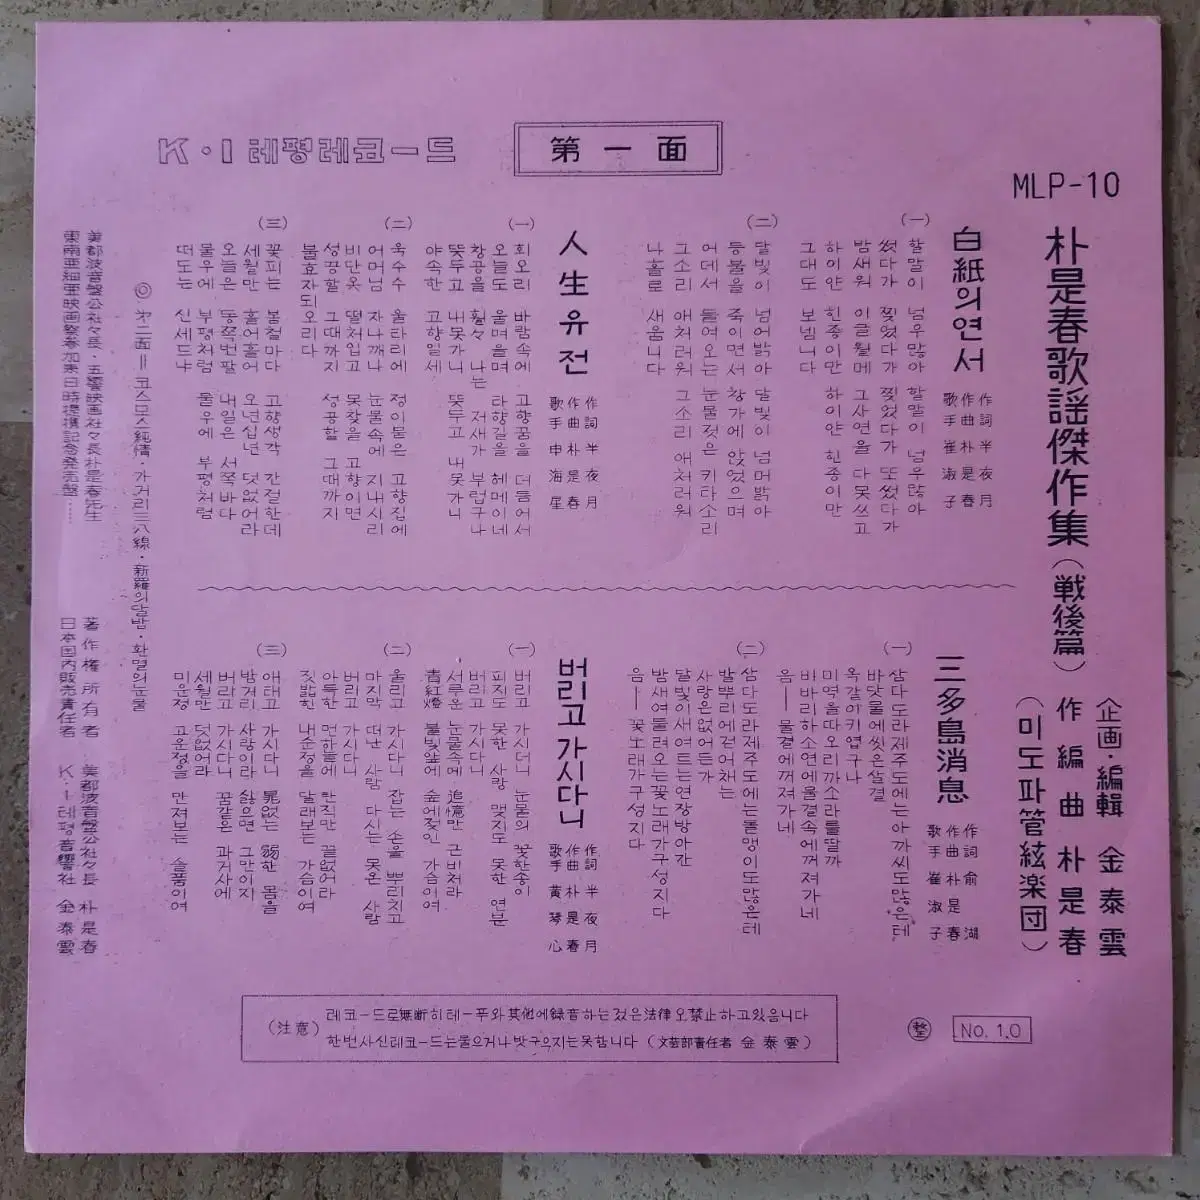 K・I 테평레코ー드
第一面
MLP-10
朴是春歌謡傑作集(戦後篇)
企画・編輯 金泰雲
作編曲 朴是春
(미도파管絃楽団)
白紙의연서
作詞 半夜月
作曲 朴是春
歌手 崔淑子
(一)
할말이 넘우많아 할말이 넘우많아
썼다가 찢었다가 찢었다가 또썼다가
밤새워 이글월메 그사연을 다못쓰고
하이얀 힌종이만 하이얀 힌종이만
그대도 보냅니다
(二)
달빛이 넘어밝아 달빛이 넘머밝아
등불을 죽이면서 창가에 앉었으며
어데서 들여오는 눈물젓은 키타소리
그소리 애처러워 그소리 애처러워
나홀로 새웁니다
人生유전
作詞 半夜月
作曲 朴是春
歌手 申海星
(一)
회오리 바람속에 고향꿈을 더듬어서
오늘도 울며울며 타향길을 헤메이네
창공을 훨々 나는 저새가 부럽구나
뜻두고 내못가니 뜻두고 내못가니
야속한 고향일세
(二)
옥수수 울타리에 정이묻은 고향집에
어머님 자나깨나 눈물속에 지내시리
비단옷 떨처입고 못찾을 고향이면
성공할 그때까지 성공할 그때까지
불효자도 오리다
(三)
꽃피는 봄철마다 고향생각 간절한데
세월만 흘어흘어 오년십년 덧없어라
오늘은 동쪽번팔 내일은 서쪽바다
물우에 부평처럼 물우에 부평처럼
떠도는 신세드냐
三多島消息
作詞 俞湖
作曲 朴是春
歌手 崔淑子
(一)
삼다도라제주도에는아까씨도많은데
바닷물에씻은살결
옥같이키엽구나
미역을따오리까소라를딸까
바바리하소연에물결속에꺼져가네
음ー물결에꺼져가네
(二)
삼다도라제주도에는돌멩이도많은데
발뿌리에걷어채는
사랑은없어든가
달빛이새여드는연장방아간
밤새여들려오는꽃노래가구성지다
음ー꽃노래가구성지다
버리고 가시다니
作詞 半夜月
作曲 朴是春
歌手 黄琴心
(一)
버리고 가시더니 눈물의 꽃한송이
피지도 못한 사랑 맺지도 못한 연분
버리고 가시다니
서루운 눈물속에 追憶만 근비처라
青紅燈 불빛앞에 숲에젖인 가슴이여
(二)
울리고 가시다니 잡는 손을 뿌리치고
마지막 떠난 사람 다시는 못온 사람
버리고 가시다니
아득한 먼한들에 한직만 끝없어라
짓밟힌 내순정을 달래보는 가슴이여
(三)
애태고 가시다니 罪없는 弱한 몸을
밤거리 사랑이라 싫으면 그만이지
버랴고 가시다니 꿈같은 과거사에
세월만 덧없어라
미운정 고운정을 만져보는 슬픔이여
◎ 㐧二面=코스모스純情・가거라三八線・新羅의달밤・환명의눈물
美都波音盤公社々長・五響映画社々長朴是春先生
東南亜細亜映画祭参加来日時提携記念発売盤……
著作権所有者 美都波音盤公社々長 朴是春
日本国内販売責任者 K・I테평音響社 金泰雲
(注意)
레코ー드로無断히테ー푸와其他에録音하는것은法律오禁止하고있읍니다
한번사신레코ー드는물으거나밧구으지는못합니다 (文芸部責任者 金泰雲)
整
No. 1.0